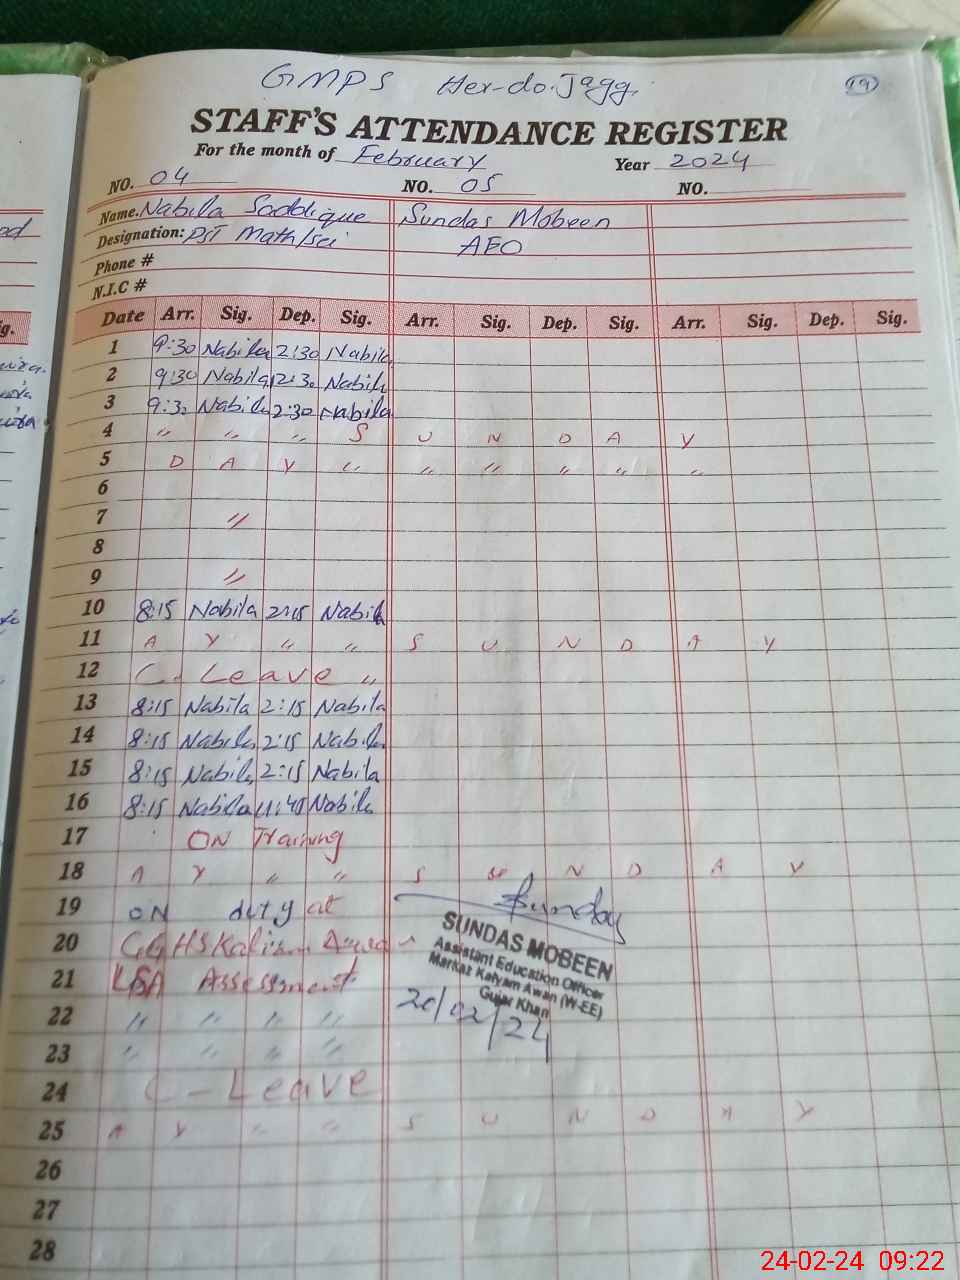 GMPS Her-do-Jagg. 19
STAFF'S ATTENDANCE REGISTER
For the month of February Year 2024
NO. 04 NO. 05 NO.
Name. Nabila Saddique Sundas Mobeen
Designation: PST Math/Sci AEO
Phone #
N.I.C #
Date Arr. Sig. Dep. Sig. Arr. Sig. Dep. Sig. Arr. Sig. Dep. Sig.
1 9:30 Nabila 2:30 Nabila
2 9:30 Nabila 2:30 Nabila
3 9:30 Nabila 2:30 Nabila
4 " " " S U N D A Y
5 D A Y " " " " " "
6
7 "
8
9 "
10 8:15 Nabila 2:15 Nabila
11 A Y " " S U N D A Y
12 C. Leave "
13 8:15 Nabila 2:15 Nabila
14 8:15 Nabila 2:15 Nabila
15 8:15 Nabila 2:15 Nabila
16 8:15 Nabila 11:45 Nabila
17 ON Training
18 A Y " " S U N D A Y
19 ON duty at
20 GGHS Kaliam Awan
21 LSA Assessment
SUNDAS MOBEEN
Assistant Education Officer
Markaz Kalyam Awan (W-EE)
Gujar Khan
20/02/24
22 " " " "
23 " " " "
24 C - Leave
25 A Y " " S U N D A Y
26
27
28
24-02-24 09:22